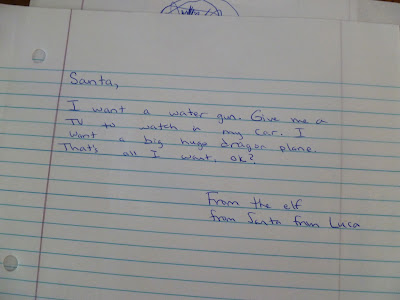 Santa,
I want a water gun. Give me a
TV to watch in my car. I
want a big huge dragon plane.
That's all I want, ok?
From the elf
from Santa from Luca